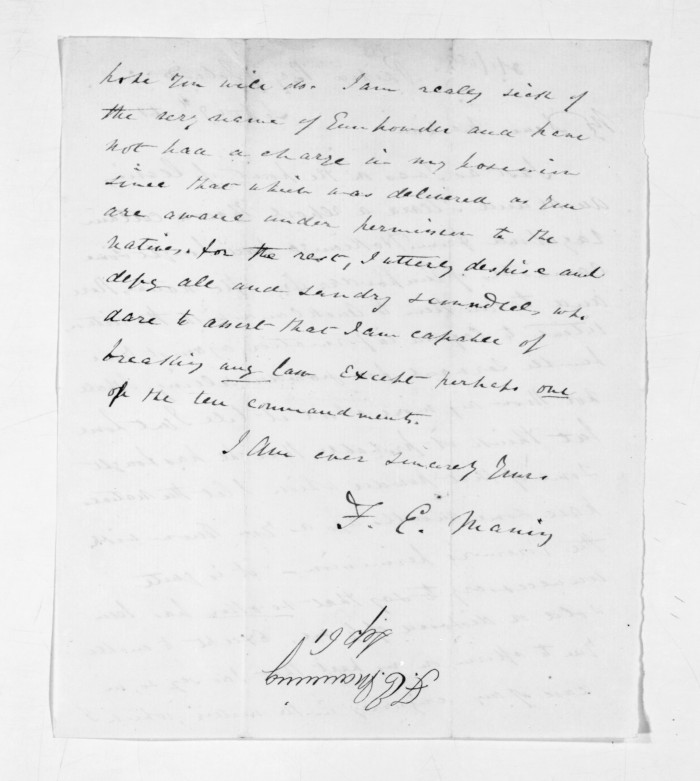 hope you will do. I am really sick of
the very name of Gunpowder and have
not had a charge in my possession
since that which was delivered as you
are aware under permission to the
natives. for the rest, I utterly despise and
defy all and sundry scoundrels who
dare to assert that I am capable of
breaking any law except perhaps one
of the ten commandments.
I am ever sincerely yours
F. E. Maning
F. E. Manning
Sep 61